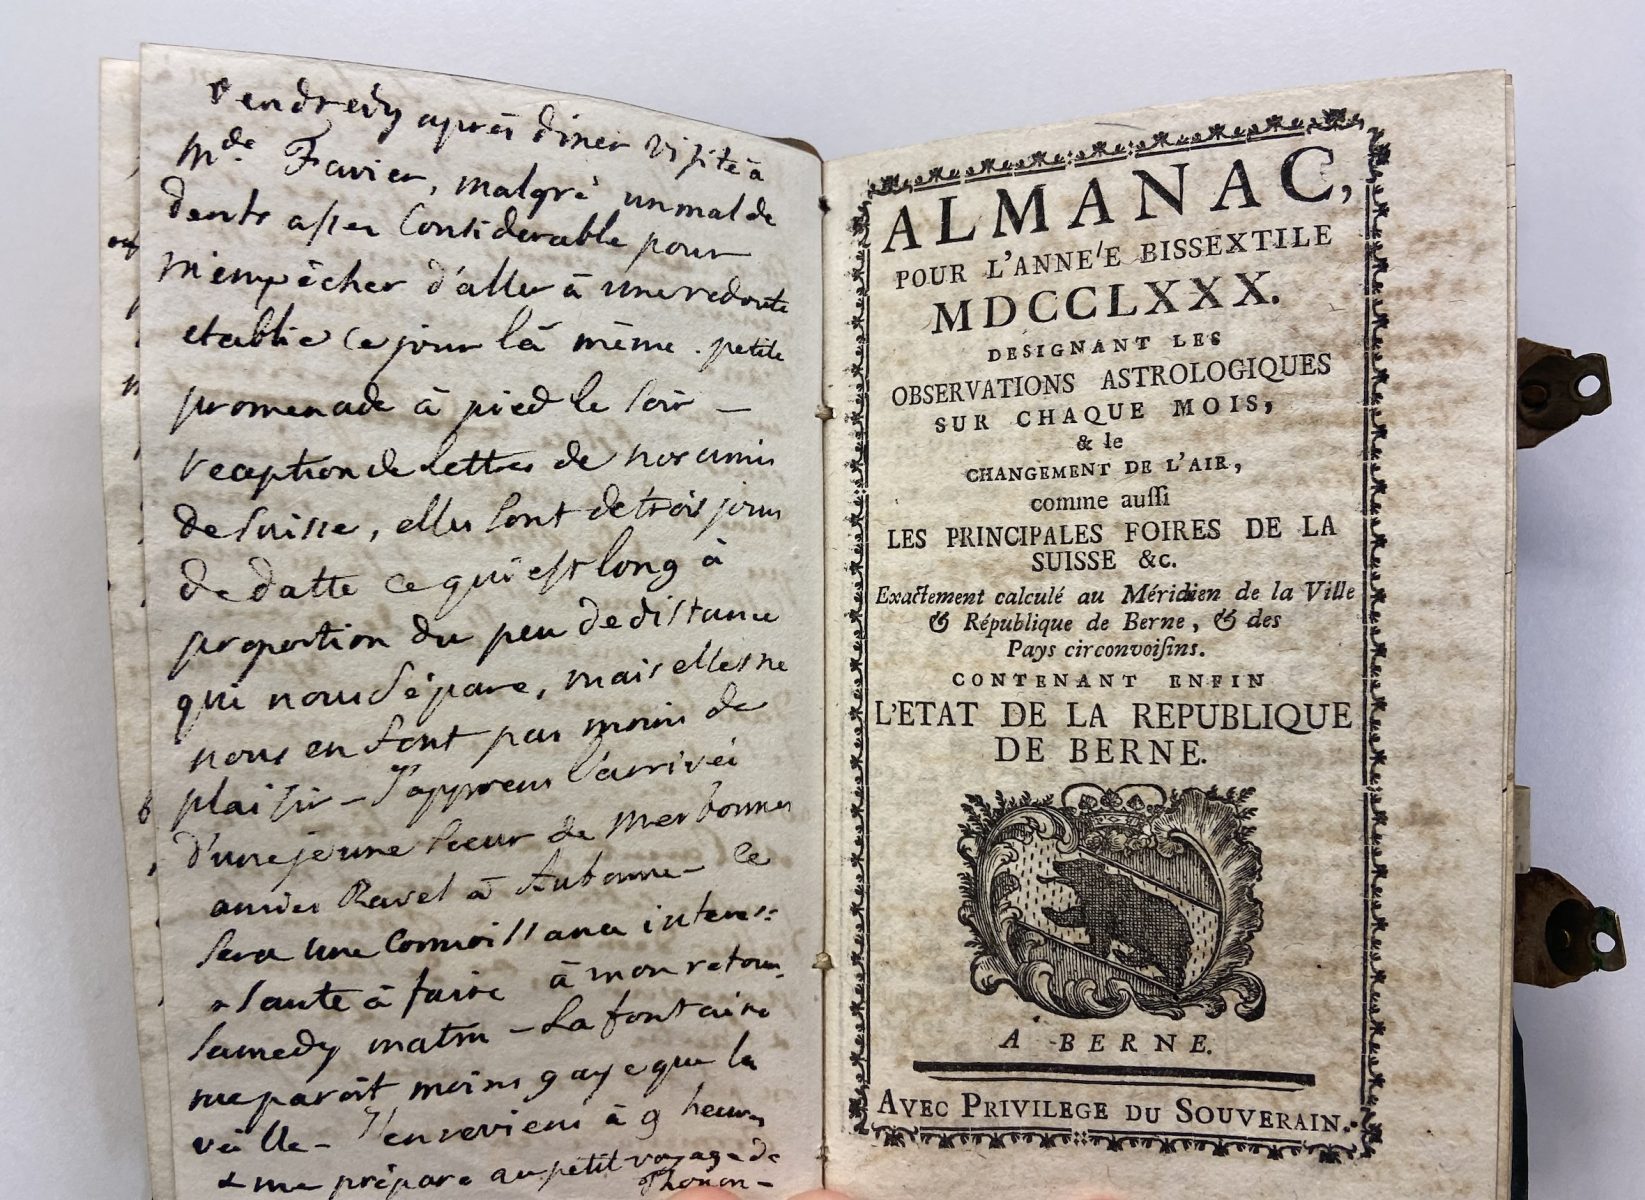 vendredy après diner visite à
Mde. Favier, malgré un mal de
dents assez Considerable pour
m'empêcher d'aller à une redoute
etablie ce jour là même. petite
promenade à pied le soir –
reception de Lettres de nos amis
de Suisse, elles sont de trois jours
de datte ce qui est long à
proportion du peu de distance
qui nous sépare, mais elles ne
nous en font pas moins de
plaisir – J'apprens l'arrivée
d'une jeune soeur de mes bonnes
amies Ravel à Aubonne – ce
sera une Connoissance interes=
=sante à faire à mon retour.
Samedy matin – La fontaine
me paroît moins gaye que la
veille – J'en reviens à 9 heures
& me prépare au petit voyage de
Thonon –
ALMANAC,
POUR L'ANNE'E BISSEXTILE
MDCCLXXX.
DESIGNANT LES
OBSERVATIONS ASTROLOGIQUES
SUR CHAQUE MOIS,
& le
CHANGEMENT DE L'AIR,
comme auſſi
LES PRINCIPALES FOIRES DE LA
SUISSE &c.
Exactement calculé au Méridien de la Ville
& République de Berne, & des
Pays circonvoiſins.
CONTENANT ENFIN
L'ETAT DE LA REPUBLIQUE
DE BERNE.
A BERNE.
AVEC PRIVILEGE DU SOUVERAIN.